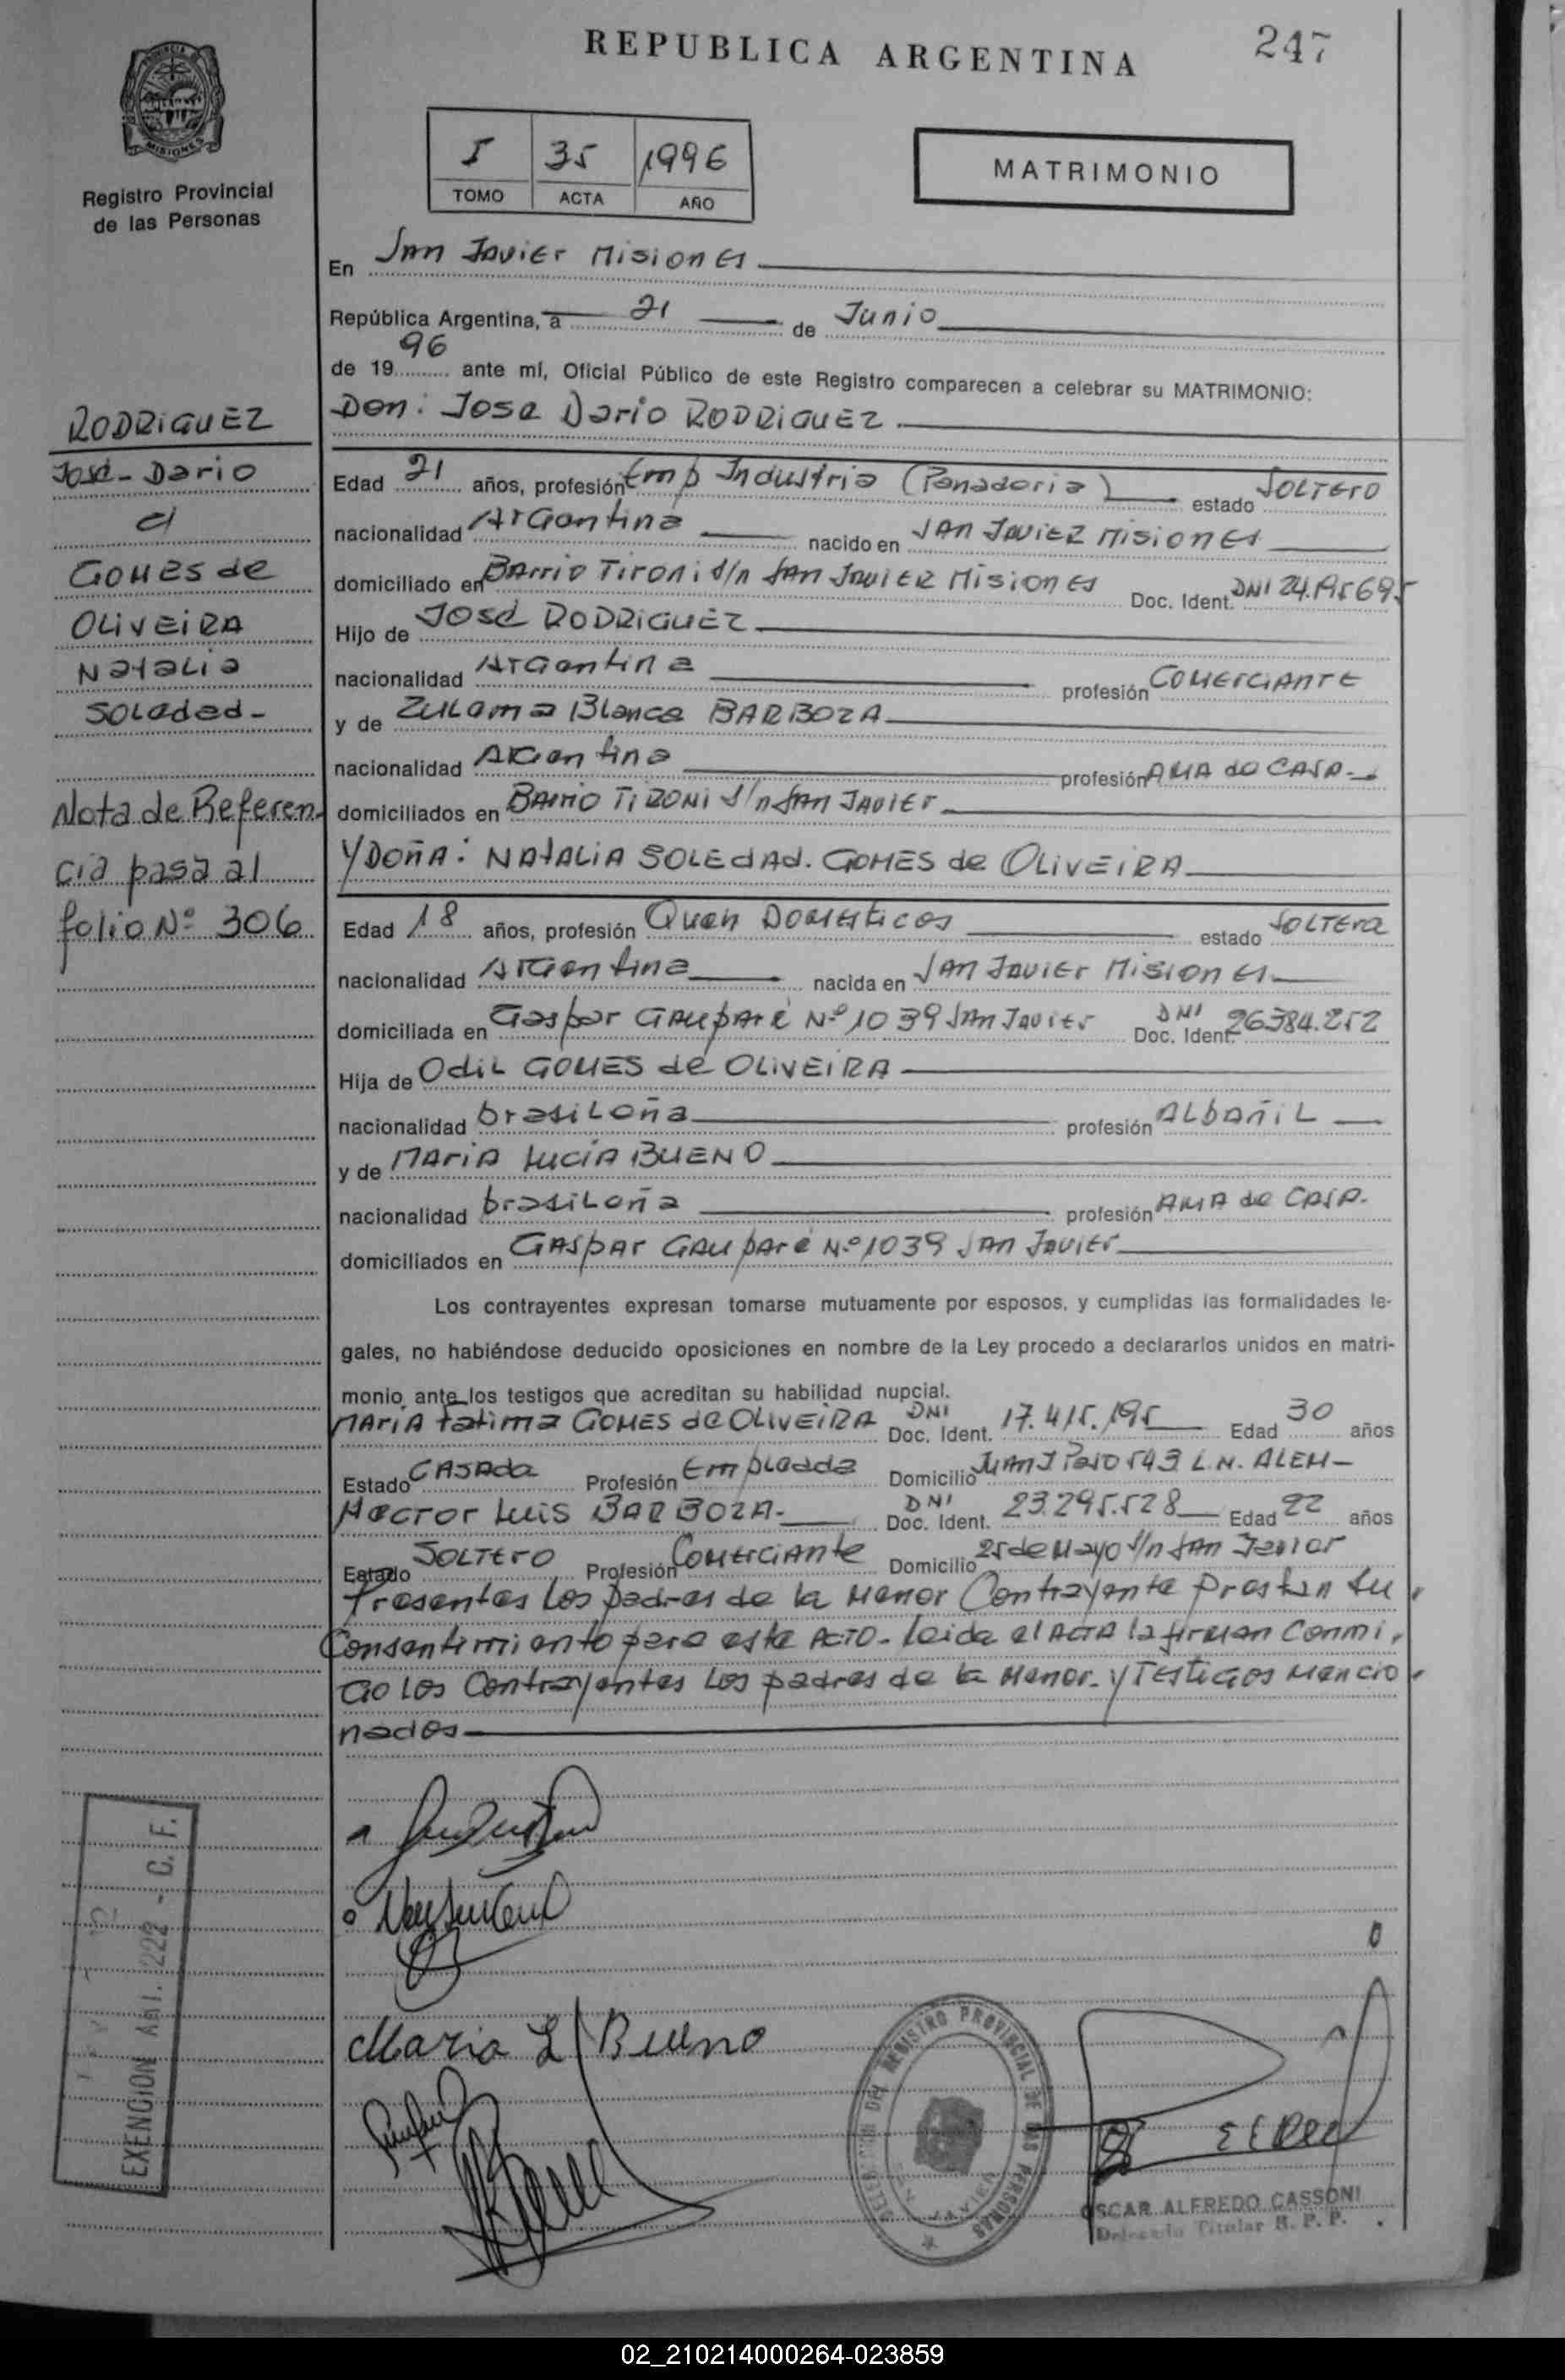 REPUBLICA ARGENTINA
247
MISIONES
Registro Provincial
de las Personas
I 35 1996
TOMO ACTA AÑO
MATRIMONIO
En San Javier Misiones
República Argentina, a 21 de Junio
de 19 96 ante mí, Oficial Público de este Registro comparecen a celebrar su MATRIMONIO:
Don: Jose Dario RODRIGUEZ
Edad 21 años, profesión Emp Industria (Panaderia) estado SOLTERO
nacionalidad Argentina nacido en SAN JAVIER Misiones
domiciliado en Barrio Tironi s/n SAN JAVIER Misiones Doc. Ident. DNI
Hijo de José RODRIGUEZ
nacionalidad Argentina profesión COMERCIANTE
y de Zulema Blanca BARBOZA
nacionalidad Argentina profesión AMA de CASA.-
domiciliados en Barrio TIRONI s/n SAN JAVIER
Y DOÑA: NATALIA SOLEdAd. GOMES de OLIVEIRA
Edad 18 años, profesión Queh Domesticos estado SOLTERA
nacionalidad Argentina nacida en SAN JAVIER Misiones
domiciliada en Gaspar Nº 1039 SAN JAVIER DNI Doc. Ident. 26384.252
Hija de Odil GOMES de OLIVEIRA
nacionalidad brasileña profesión ALbAÑiL
y de MARIA LUCIA BUENO
nacionalidad brasileña profesión AMA de CASA.
domiciliados en GASPAR Nº 1039 SAN JAVIER
Los contrayentes expresan tomarse mutuamente por esposos, y cumplidas las formalidades le-
gales, no habiéndose deducido oposiciones en nombre de la Ley procedo a declararlos unidos en matri-
monio ante los testigos que acreditan su habilidad nupcial.
MARIA Fatima GOMES de OLIVEIRA DNI Doc. Ident. 17.415.195 Edad 30 años
Estado CASAda Profesión Empleada Domicilio JUAN J Paso 543 L.N. ALEM-
Hector Luis BARBOZA- DNI Doc. Ident. 23.295.528 Edad 22 años
Estado SOLTERO Profesión Comerciante Domicilio 25 de Mayo s/n San Javier
Presentes los padres de la Menor Contrayente prestan su
Consentimiento para este ACTO- leida el ACTA la firman Conmi
Go los Contrayentes los padres de la Menor- y Testigos Mencio
nados
RODRIGUEZ
José-Dario
c/
Gomes de
OLIVEIRA
Natalia
Soledad-
Nota de Referen
cia pasa al
folio Nº 306
EXENCION Art. 222 - C. F.
Maria L Bueno
REGISTRO PROVINCIAL DE LAS PERSONAS
OSCAR ALFREDO CASSONI
Delegado Titular R. P. P.
02_210214000264-023859